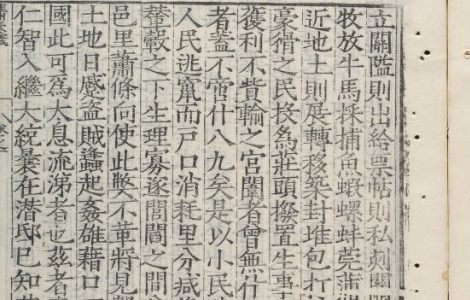 立關隘則出給票帖則私刻關
牧放牛馬採捕魚蝦螺蚌莞蒲
近地土則展轉移築封堆包打
豪猾之民投為莊頭撥置生事
獲利不貲輸之宮闈者曾無什
者蓋不啻什八九矣是以小民
人民逃竄而戶口消耗里分減
輦轂之下生理寡遂閭閻之間
邑里蕭條向使此弊不革將見
土地日蹙盜賊蠭起姦雄藉口
國此可為太息流涕者也茲者
仁智入繼大統曩在潛邸已知